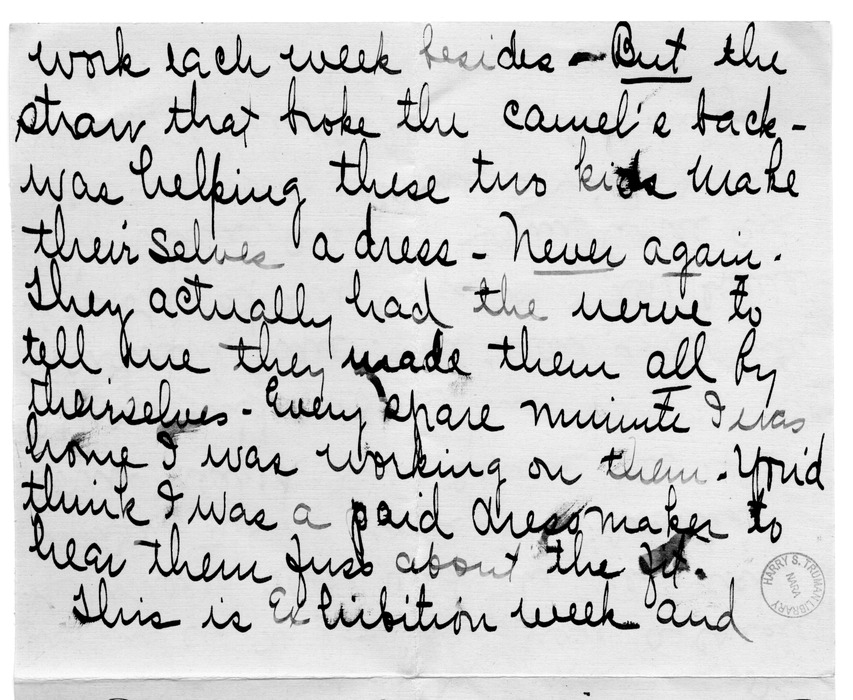 work each week besides - But the
straw that broke the camel's back -
was helping these two kids make
their selves a dress - Never again.
They actually had the nerve to
tell me they made them all by
theirselves - Every spare minute I was
home I was working on them. You'd
think I was a paid dressmaker to
hear them fuss about the fit.
This is Exhibition week and
HARRY S. TRUMAN LIBRARY
NARA